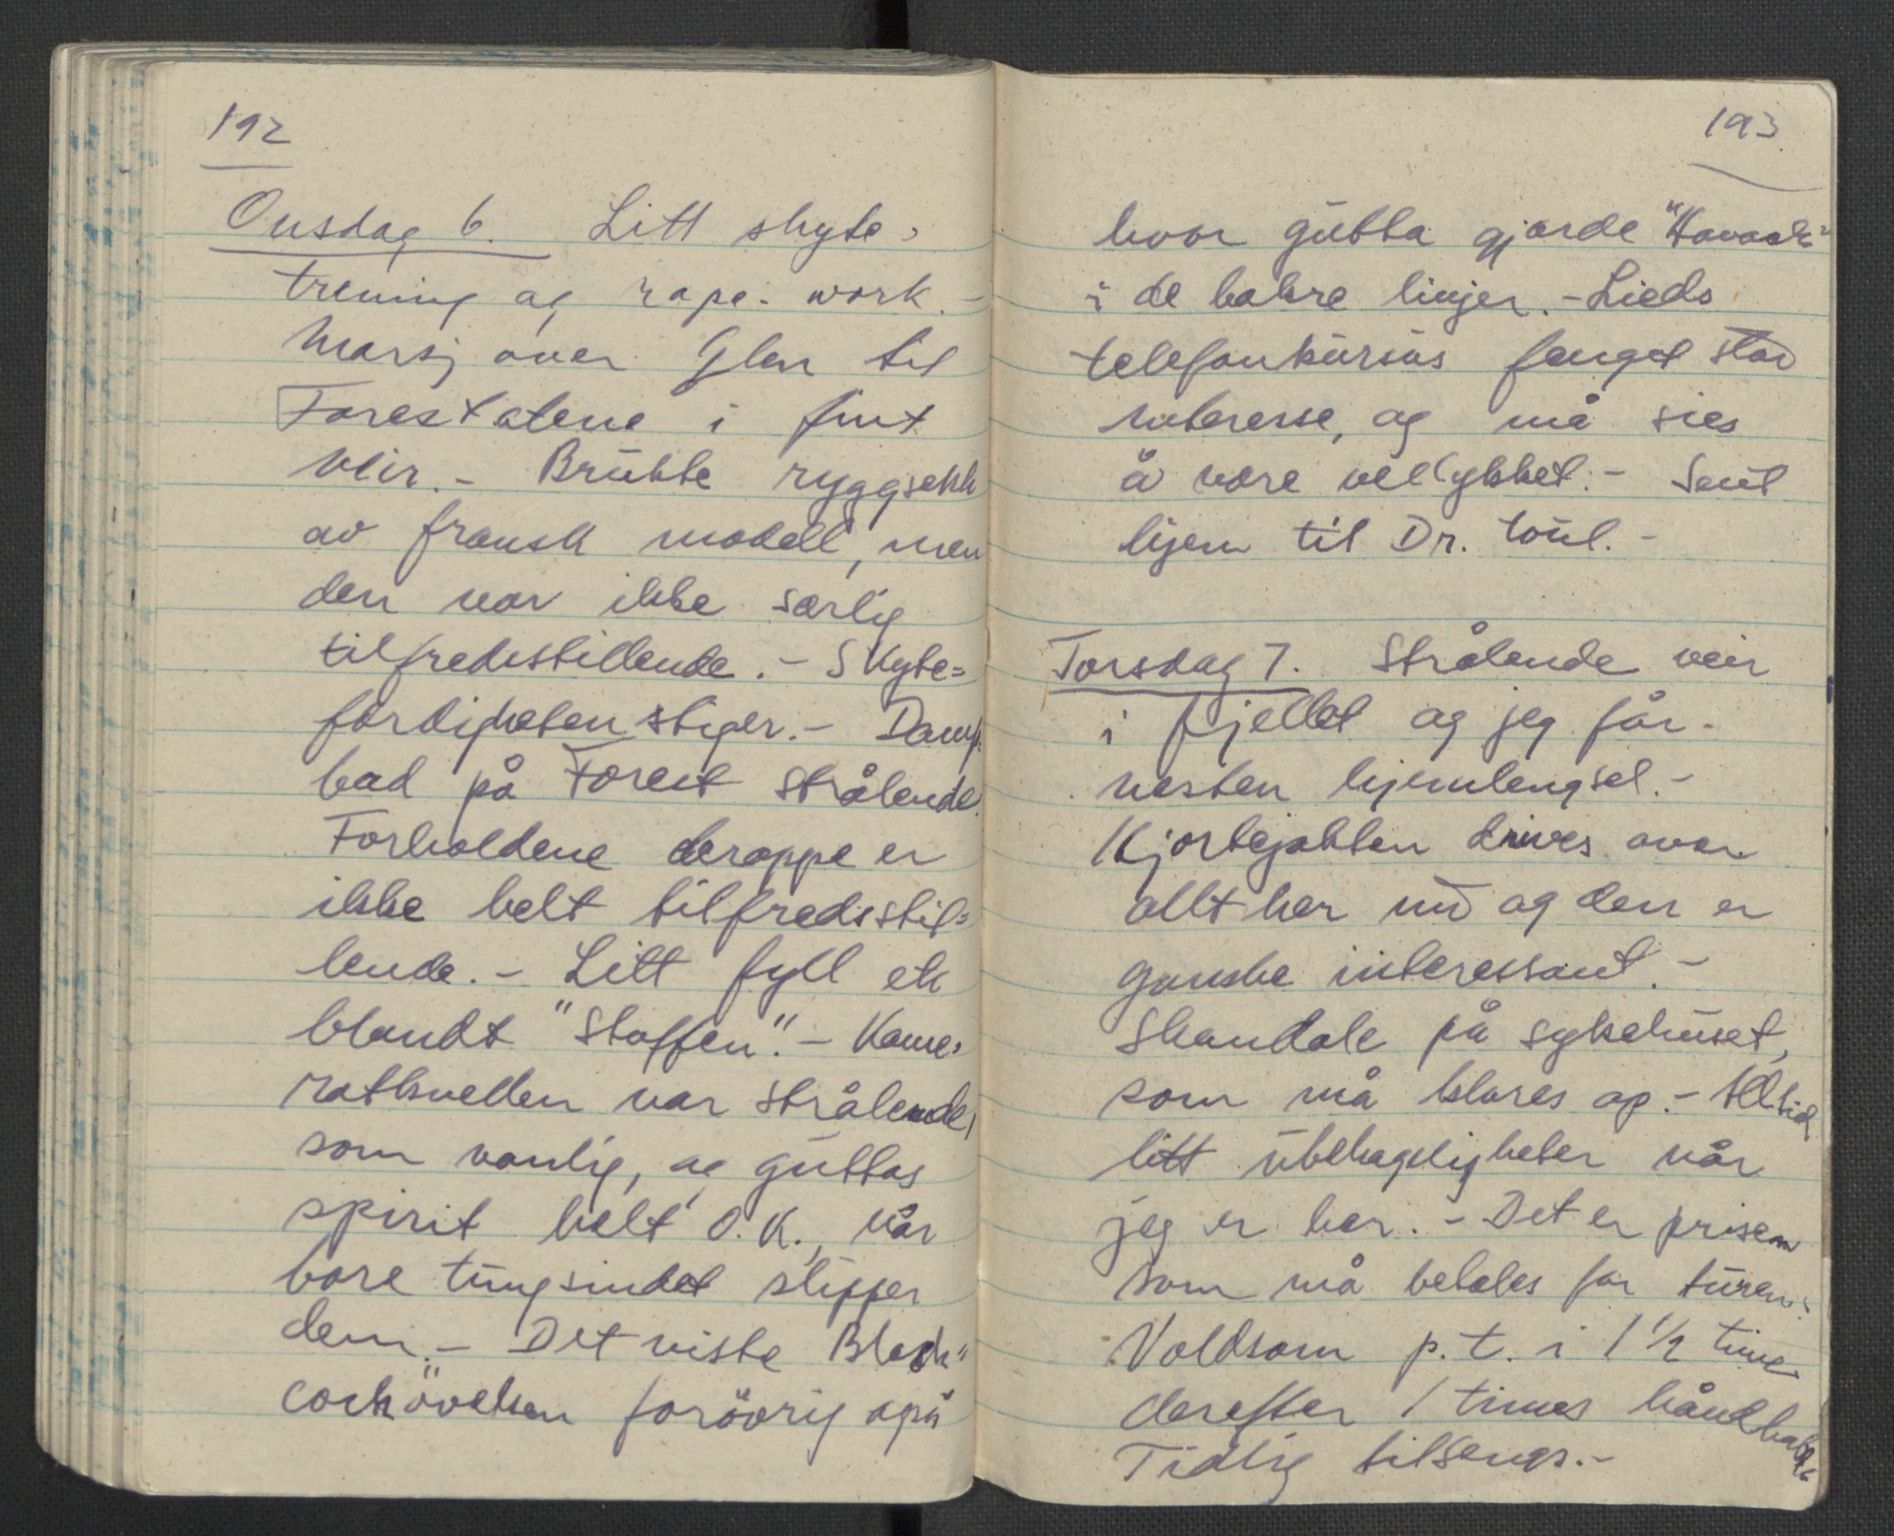 192
Onsdag 6. Litt skyte=
trening og rope-work.-
Marsj over Glen til
Forestalene i fint
veir.- Brukte ryggsekk
av fransk modell, men
den var ikke særlig
tilfredsstillende.- Skyte=
ferdigheten stiger.- Damp-
bad på Forest strålende.
Forholdene deroppe er
ikke helt tilfredsstil=
lende.- Litt fyll etc
blandt "Staffen".- Kame=
ratkvellen var strålende,
som vanlig, og guttas
spirit helt O.K., når
bare tungsindet slipper
dem.- Det viste Black"
cock"övelsen forövrig også
193
hvor gutta gjorde "Havoch"
i de bakre linjer.- Lieds
telefonkursus fenget stor
interesse, og må sies
å være vellykket.- Sent
hjem til Dr. toul.-
Torsdag 7. Strålende veir
i fjellet og jeg får
nesten hjemlengsel.-
Hjortejakten drives over
allt her nu og den er
ganske interessant.-
Skandale på sykehuset,
som må klares op.- Alltid
litt ubehageligheter når
jeg er her.- Det er prisen
som må betales for turen.
Voldsom p.t. i 1 1/2 time
derefter 1 times håndball
Tidlig tilsengs.-